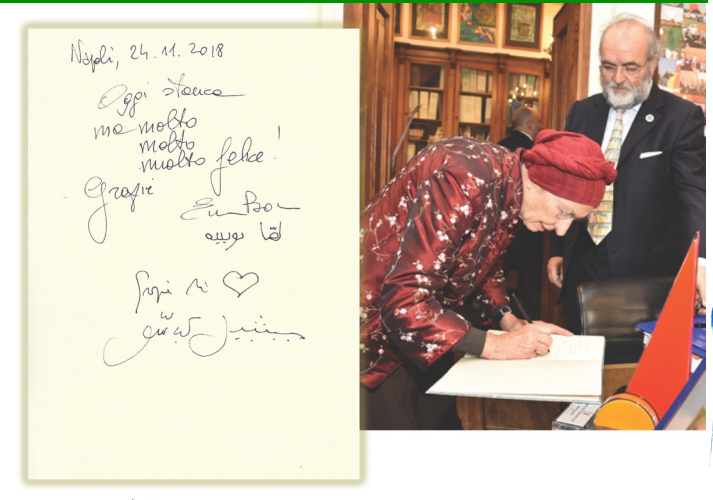 Napoli, 24.11.2018
Oggi stanca
ma molto
molto
molto felice!
Grazie
Grazie di ♡